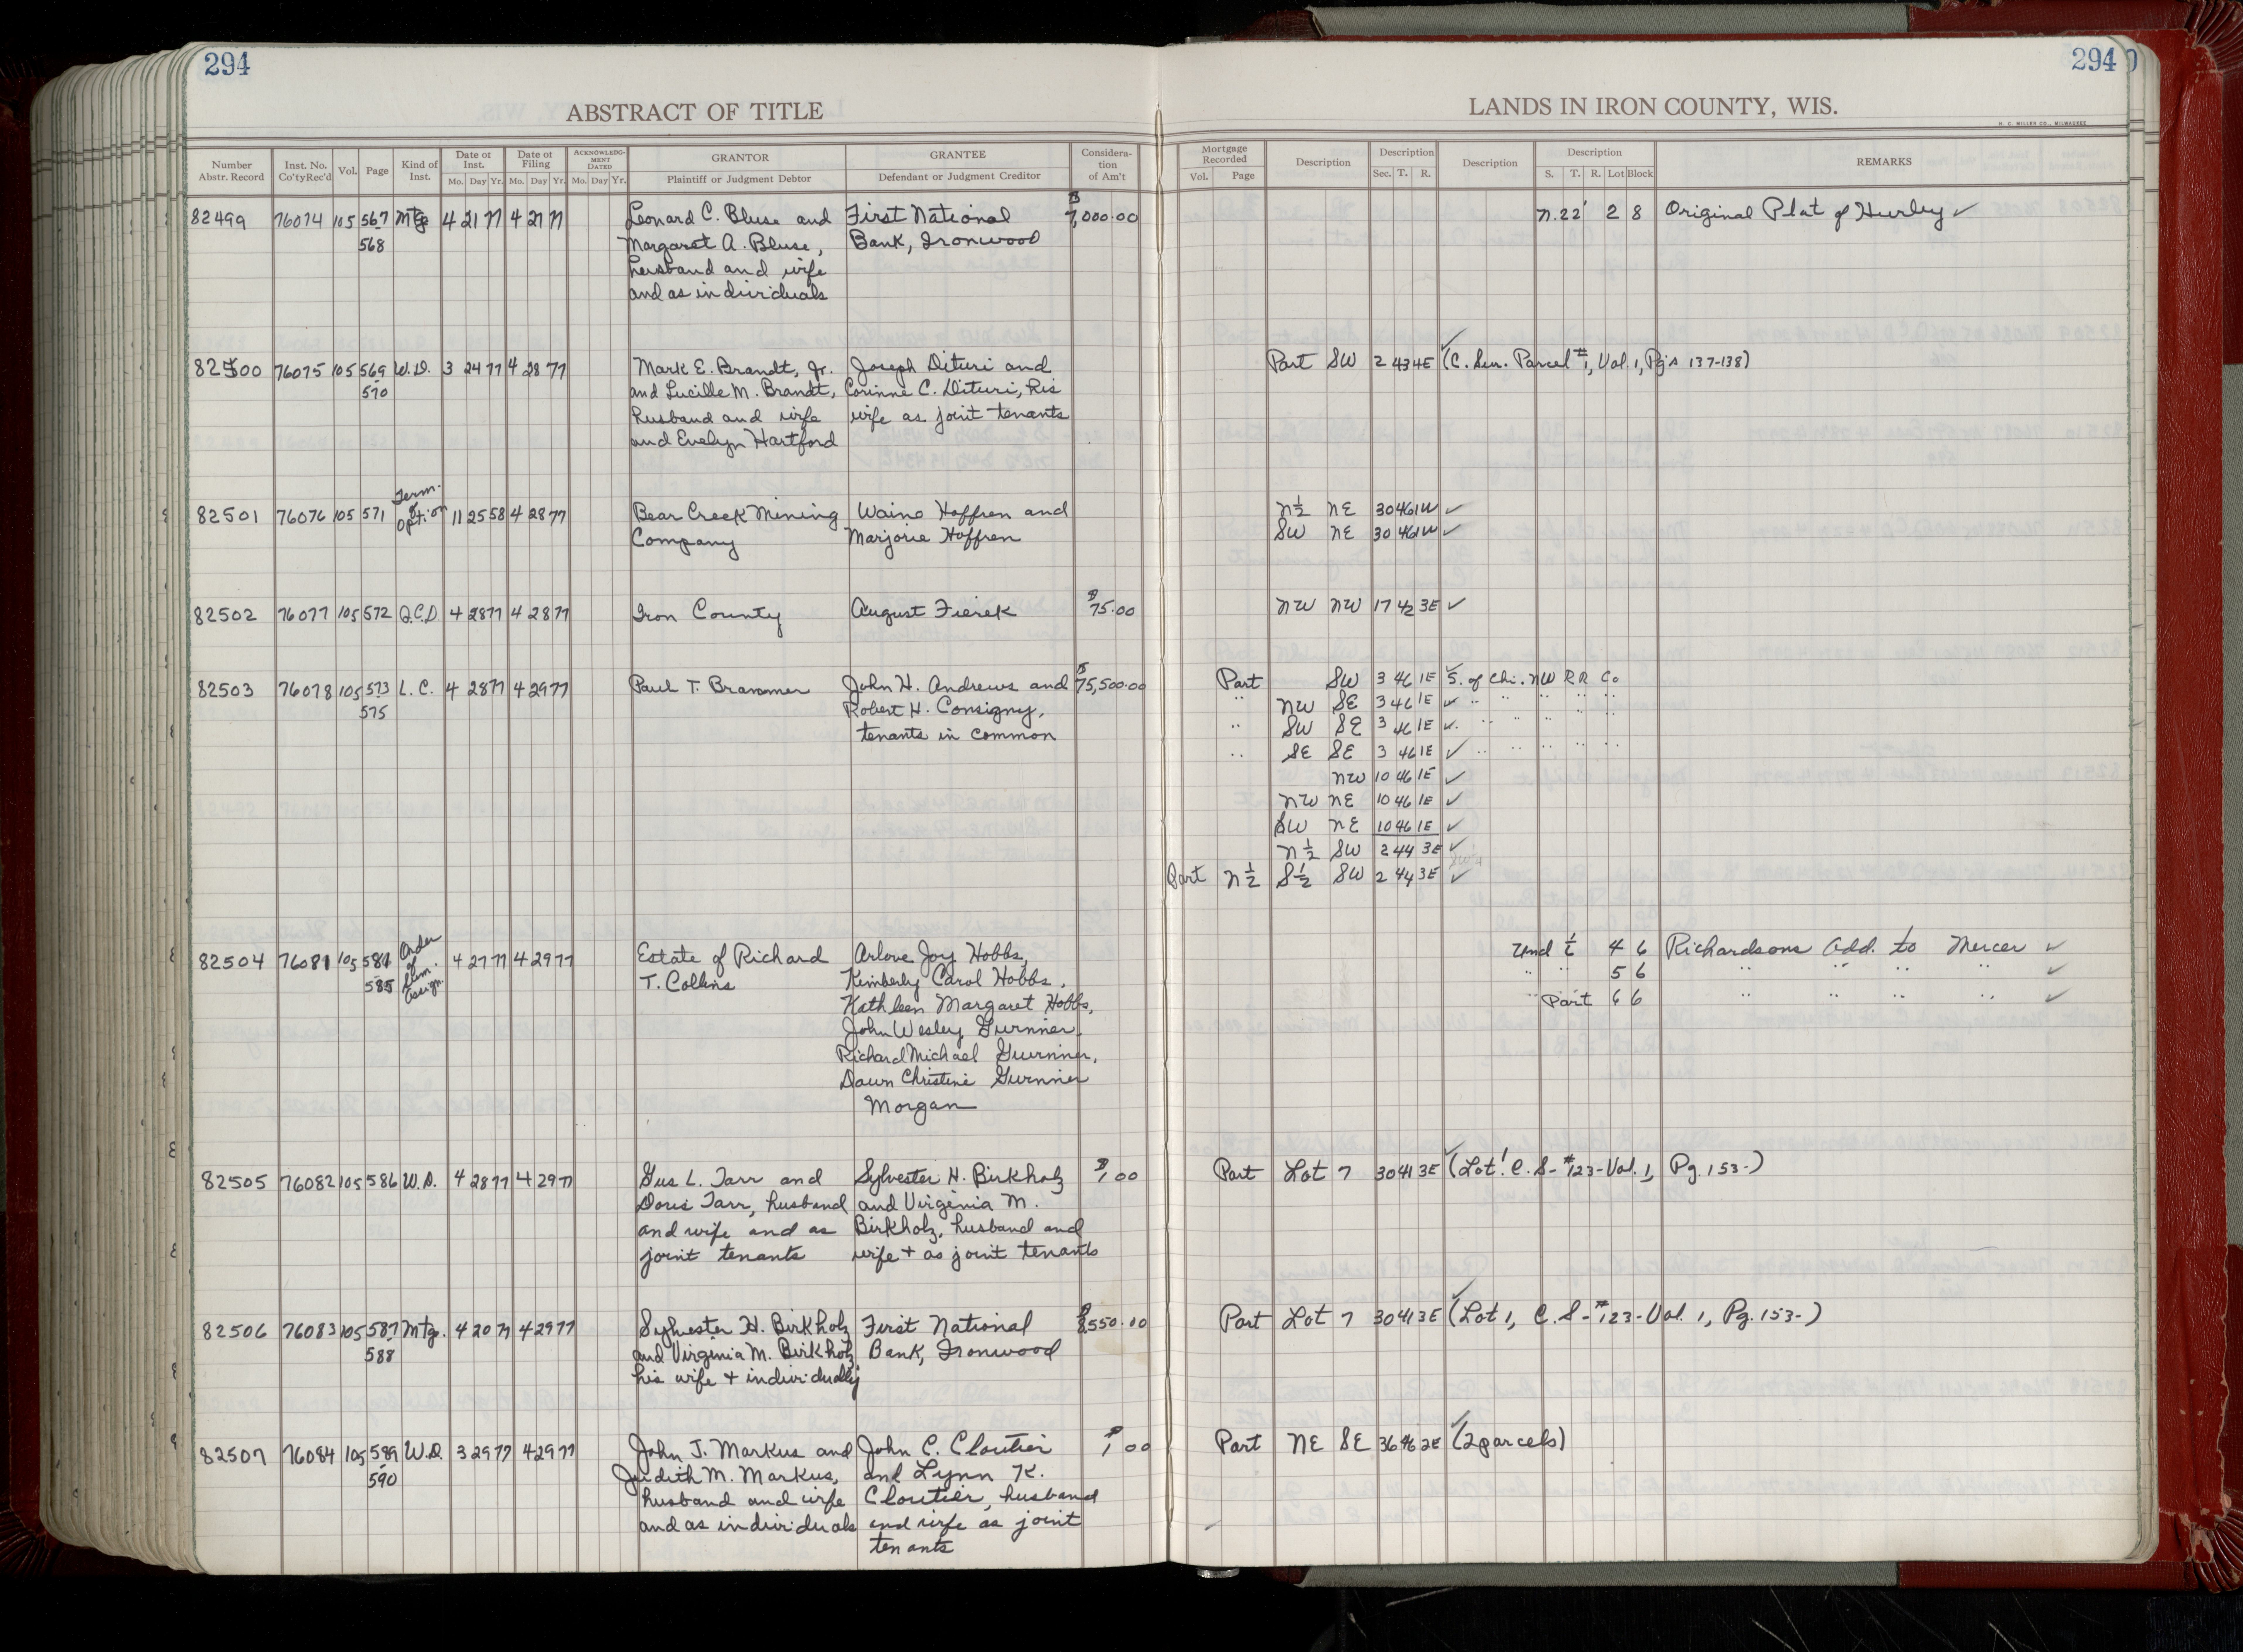 294
294
ABSTRACT OF TITLE
LANDS IN IRON COUNTY, WIS.
H. C. MILLER CO., MILWAUKEE
Number Abstr. Record Inst. No. Co'tyRec'd Vol. Page Kind of Inst. Date of Inst. Mo. Day Yr. Date of Filing Mo. Day Yr. ACKNOWLEDGMENT DATED Mo. Day Yr. GRANTOR Plaintiff or Judgment Debtor GRANTEE Defendant or Judgment Creditor Consideration of Am't Mortgage Recorded Vol. Page Description Description Sec. T. R. Description Description S. T. R. Lot Block REMARKS
82499 76074 105 567 Mtg 4 21 77 4 27 77 Leonard C. Bluse and First National $7,000.00 N.22' 2 8 Original Plat of Hurley ✓
568 Margaret A. Bluse, Bank, Ironwood
husband and wife
and as individuals
82500 76075 105 569 W.D. 3 24 77 4 28 77 Mark E. Brandt, Jr. Joseph Dituri and Part SW 2 43 4E ✓ (C. Sur. Parcel #1, Vol. 1, Pgs 137-138)
570 and Lucille M. Brandt, Corinne C. Dituri, his
husband and wife wife as joint tenants
and Evelyn Hartford
82501 76076 105 571 Term. of Option 11 25 58 4 28 77 Bear Creek Mining Waino Hoffren and N½ NE 30 46 1W ✓
Company Marjorie Hoffren SW NE 30 46 1W ✓
82502 76077 105 572 Q.C.D 4 28 77 4 28 77 Iron County August Fierek $75.00 NW NW 17 42 3E ✓
82503 76078 105 573 L.C. 4 28 77 4 29 77 Paul T. Brammer John H. Andrews and $75,500.00 Part SW 3 46 1E ✓ S. of Chi. NW RR Co
575 Robert H. Consigny, " NW SE 3 46 1E ✓ " " " " "
tenants in common " SW SE 3 46 1E ✓ " " " " "
" SE SE 3 46 1E ✓ " " " " "
NW 10 46 1E ✓
NW NE 10 46 1E ✓
SW NE 10 46 1E ✓
N½ SW 2 44 3E ✓
Part N½ S½ SW 2 44 3E ✓
82504 76081 105 581 Order of Sum. Assign. 4 27 77 4 29 77 Estate of Richard Arlove Joy Hobbs, Und 4 6 Richardsons Add. to Mercer ✓
585 T. Collins Kimberly Carol Hobbs, " " 5 6 " " " " ✓
Kathleen Margaret Hobbs, " Part 6 6 " " " " ✓
John Wesley Gurnner
Richard Michael Gurnner,
Dawn Christine Gurnner
Morgan
82505 76082 105 586 W.D. 4 28 77 4 29 77 Gus L. Tarr and Sylvester H. Birkholz $1.00 Part Lot 7 30 41 3E ✓ (Lot 1 C.S-#123-Vol. 1, Pg. 153-)
Doris Tarr, husband and Virginia M.
and wife and as Birkholz, husband and
joint tenants wife + as joint tenants
82506 76083 105 587 Mtg. 4 20 77 4 29 77 Sylvester H. Birkholz First National $8,550.00 Part Lot 7 30 41 3E ✓ (Lot 1, C.S-#123-Vol. 1, Pg. 153-)
588 and Virginia M. Birkholz Bank, Ironwood
his wife + individually
82507 76084 105 589 W.D. 3 29 77 4 29 77 John J. Markus and John C. Cloutier $1.00 Part NE SE 36 46 2E ✓ (2 parcels)
590 Judith M. Markus, and Lynn K.
husband and wife Cloutier, husband
and as individuals and wife as joint
tenants